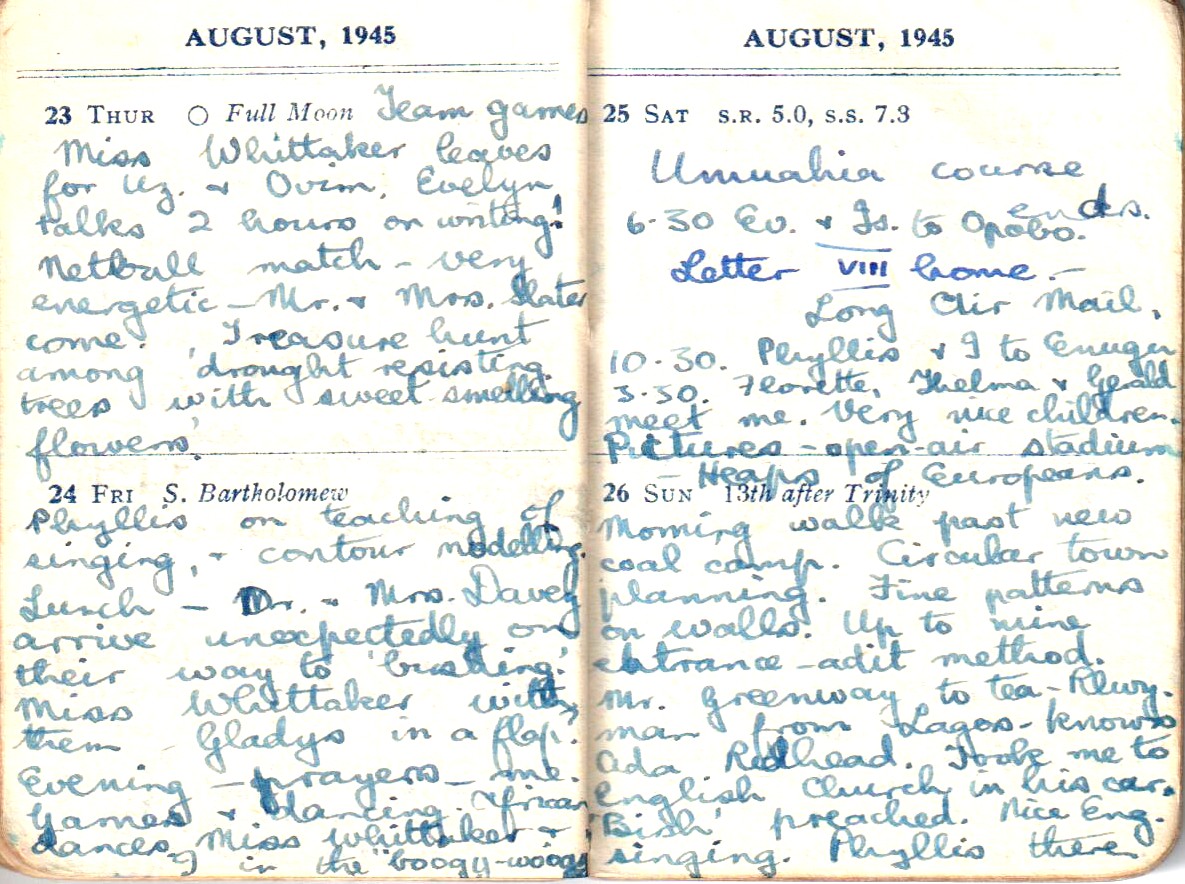 AUGUST, 1945
23 THUR ○ Full Moon Team games
Miss Whittaker leaves
for Uz. & Ovim. Evelyn
talks 2 hours on writing!
Netball match - very
energetic - Mr. & Mrs. Slater
come. Treasure hunt
among 'drought resisting
trees with sweet smelling
flowers'.
24 FRI S. Bartholomew
Phyllis on teaching of
singing, & contour modelling.
Lunch - Dr. & Mrs. Davey
arrive unexpectedly on
their way to 'bushing'.
Miss Whittaker with
them - Gladys in a flap.
Evening - prayers - me.
Games & dancing. African
dances, Miss Whittaker &
I in the "boogy-woogy
AUGUST, 1945
25 SAT S.R. 5.0, S.S. 7.3
Umuahia course
ends.
6.30 Ev. & Is. to Opobo.
Letter VIII home. -
Long Air Mail.
10.30. Phyllis & I to Enugu
3.30. Florette, Thelma & Gerald
meet me. Very nice children.
Pictures - open-air stadium
- Heaps of Europeans.
26 SUN 13th after Trinity
Morning walk past new
coal camp. Circular town
planning. Fine patterns
on walls. Up to mine
entrance - adit method.
Mr. Greenway to tea - Rlwy.
man from Lagos - knows
Ada Redhead. Took me to
English Church in his car.
'Bish' preached. Nice Eng.
singing. Phyllis there